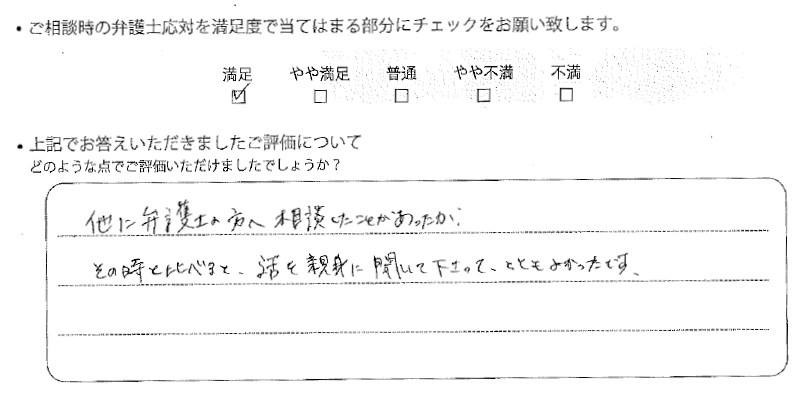 ・ご相談時の弁護士応対を満足度で当てはまる部分にチェックをお願い致します。
満足 やや満足 普通 やや不満 不満
☑ □ □ □ □
・上記でお答えいただきましたご評価について
どのような点でご評価いただけましたでしょうか？
他に弁護士の方へ相談したことがあったが、
その時と比べると、話を親身に聞いて下さって、とてもよかったです、